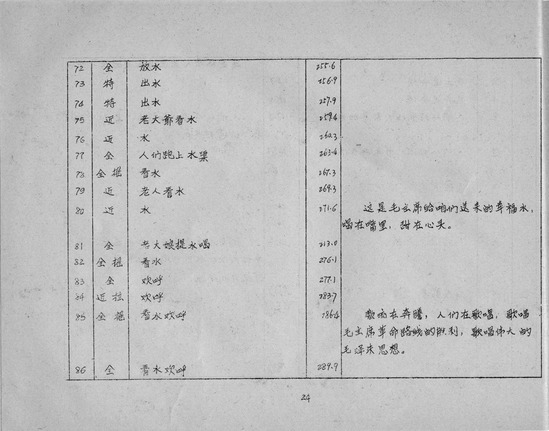 72 全 放水 255.6
73 特 出水 256.9
74 特 出水 257.9
75 近 老大爷看水 259.6
76 近 水 262.3
77 全 人们跑上水渠 263.4
78 全摇 看水 267.3
79 近 老人看水 269.3
80 近 水 271.6 这是毛主席给咱们送来的幸福水,
喝在嘴里,甜在心头。
81 全 老大娘提水喝
82 全摇 看水 276.1
83 全 欢呼 277.1
84 近拉 欢呼 283.7
85 全摇 看水欢呼 286.4 歌声在奔腾,人们在歌唱,歌唱
毛主席革命路线的胜利,歌唱伟大的
毛泽东思想。
86 全 看水欢呼 289.9
24